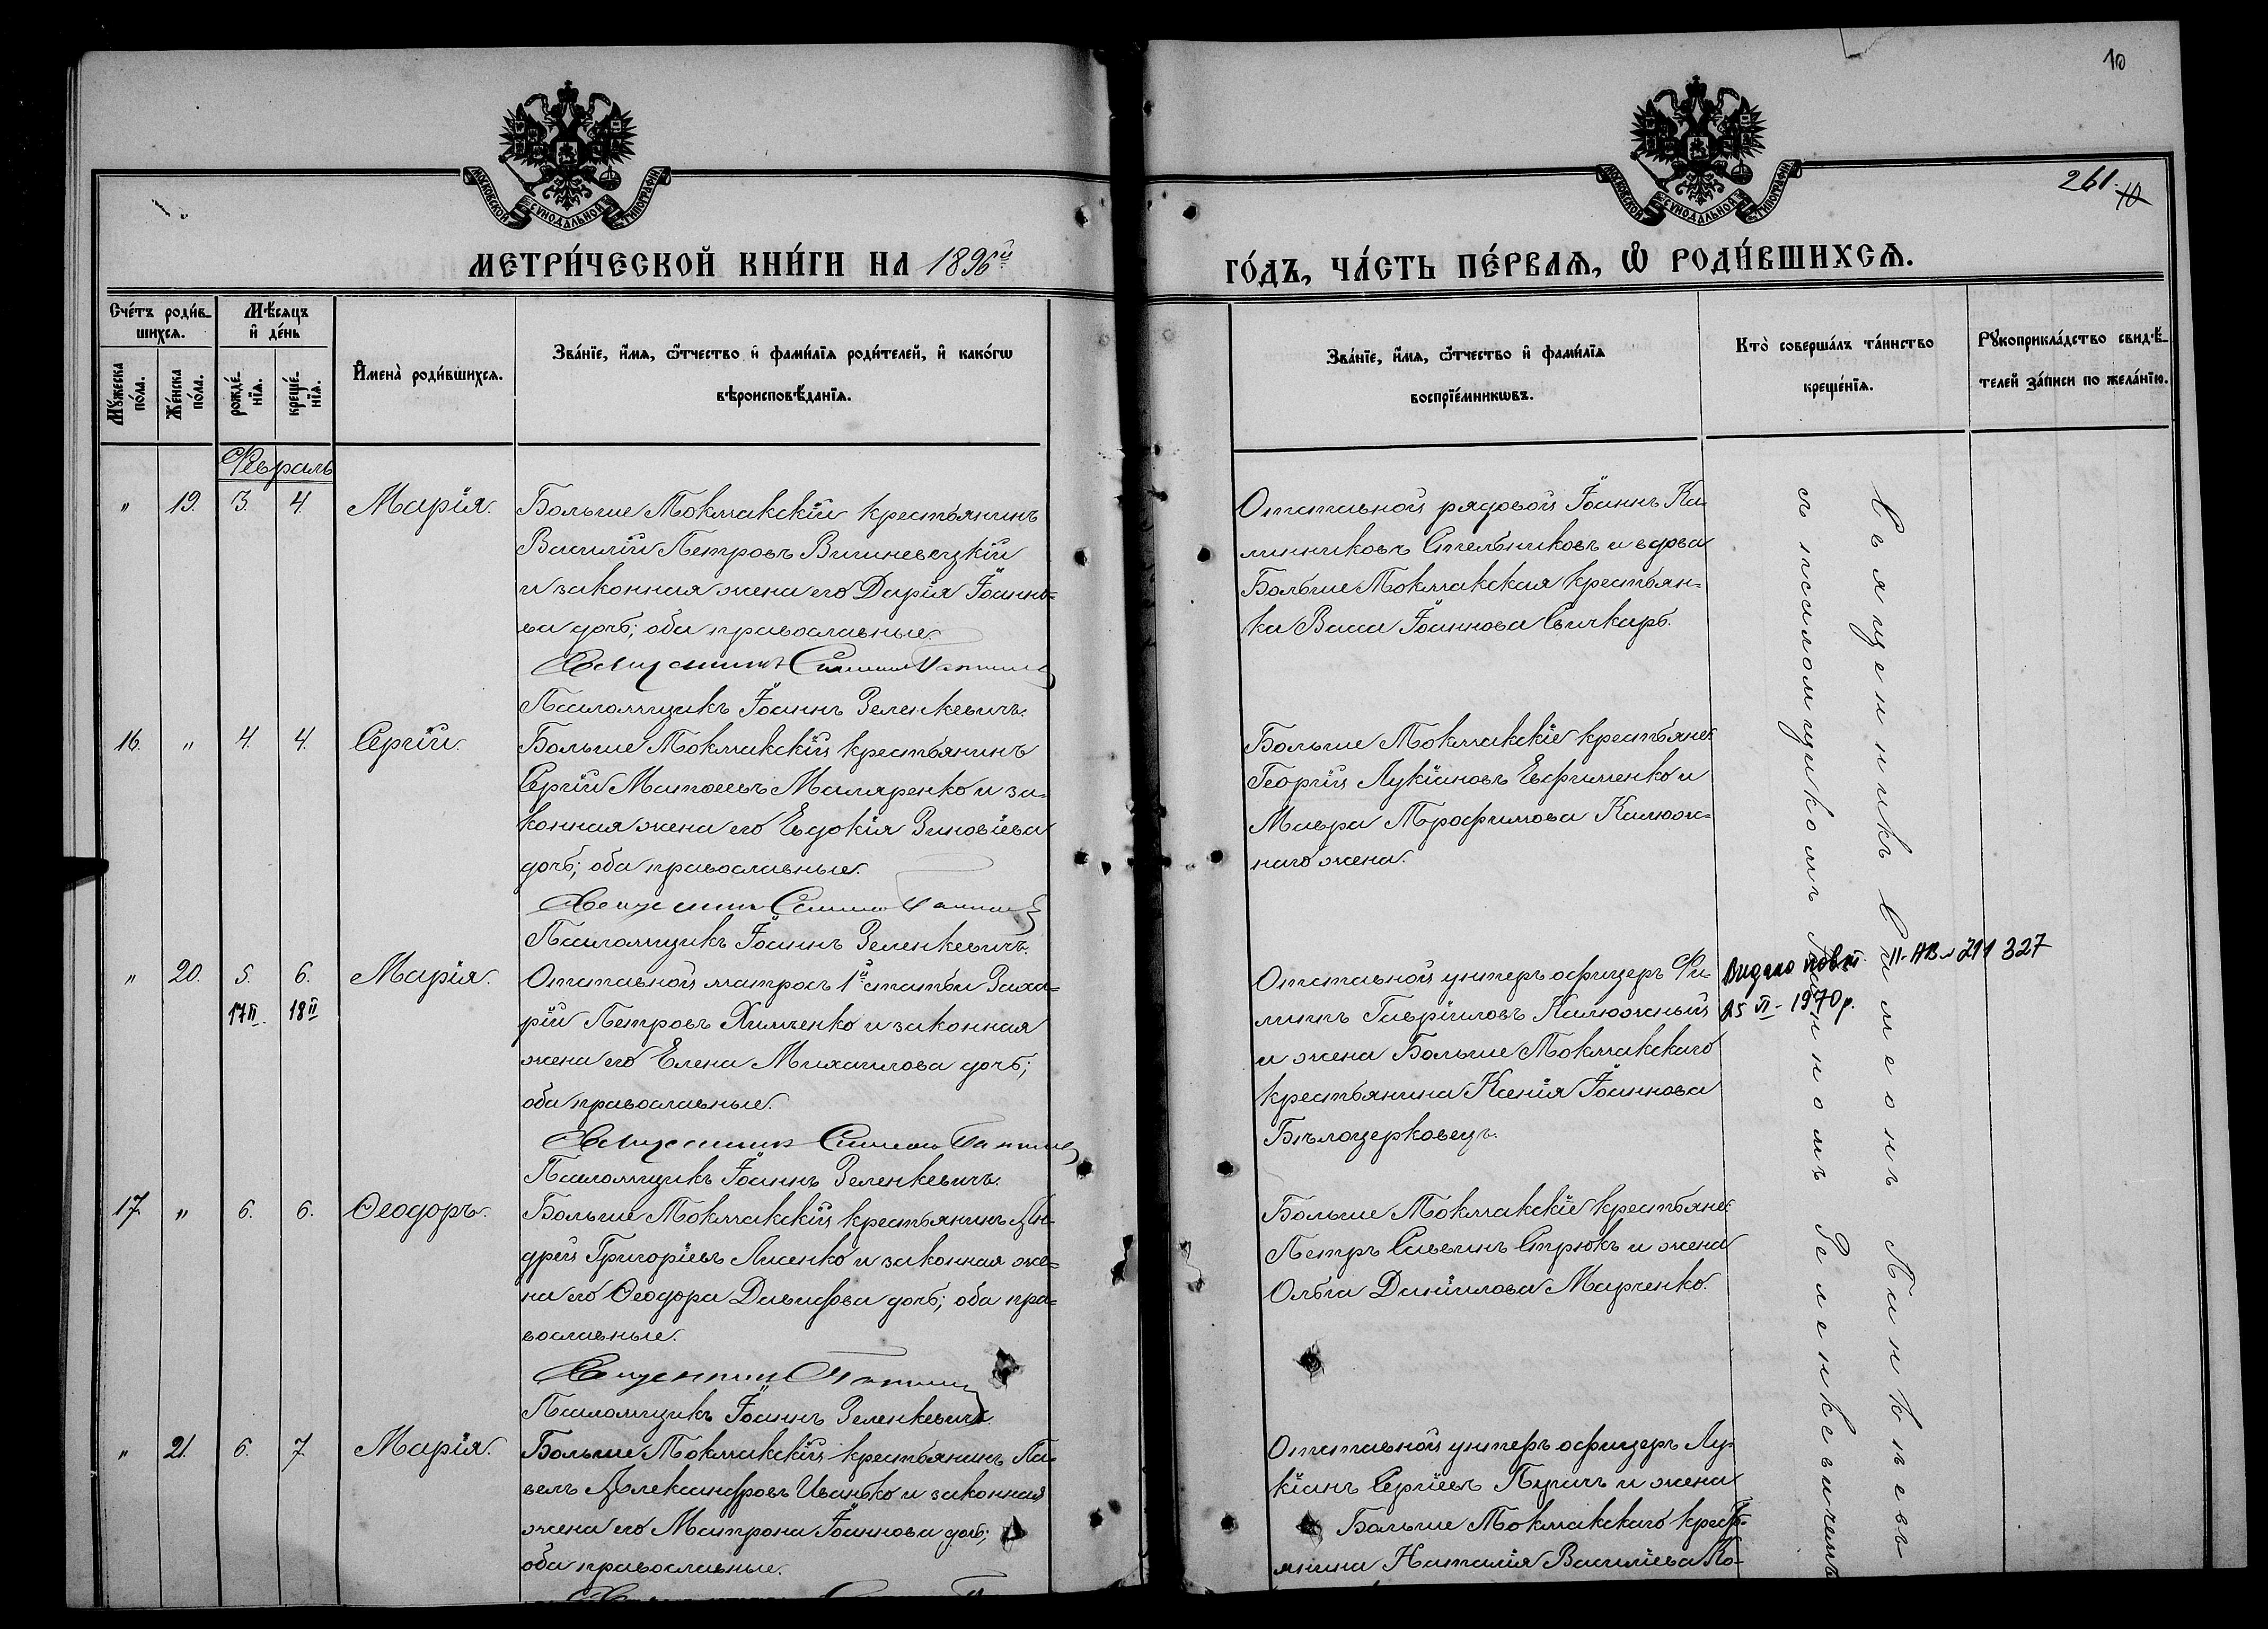 10
МОСКОВСКОЙ СУНОДАЛЬНОЙ ТИПОГРАФІИ
МОСКОВСКОЙ СУНОДАЛЬНОЙ ТИПОГРАФІИ
261. 10
МЕТРИ́ЧЕСКОЙ КНИ́ГИ НА 1896й
ГО́ДЪ, ЧА́СТЬ ПЕ́РВАѦ, Ѡ҆ РОДИ́ВШИХСѦ.
Сче́тъ роди́в-
шихсѧ.
Мꙋ́жеска по́ла.
Же́нска по́ла.
Мѣ́сѧцъ
и҆ де́нь
рожде́-
нїѧ.
креще́-
нїѧ.
И҆мена̀ роди́вшихсѧ.
Зва́нїе, и҆́мѧ, ѻ҆́тчество и҆ фами́лїѧ роди́телей, и҆ како́гѡ
вѣроисповѣ́данїѧ.
Зва́нїе, и҆́мѧ, ѻ҆́тчество и҆ фами́лїѧ
воспрїе́мникѡвъ.
Кто̀ соверша́лъ та́инство
креще́нїѧ.
Рꙋкоприкла́дство свидѣ́-
телей за́писи по жела́нїю.
Февраль
" 19. 3. 4. Марія.
Больше Токмакскій крестьянинъ
Василій Петровъ Вишневецкій
и законная жена его Дарія Іоанно-
ва дочь; оба православные.
Священникъ Симеонъ
Псаломщикъ Іоаннъ Зеленкевичъ.
Отставной рядовой Іоаннъ Ка-
линниковъ Стельниковъ и вдова
Больше Токмакская крестьян-
ка Васса Іоаннова Свичкарь.
16. " 4. 4. Сергій.
Больше Токмакскій крестьянинъ
Сергій Матѳеевъ Маляренко и за-
конная жена его Евдокія Зиновіева
дочь; оба православные.
Священникъ Симеонъ
Псаломщикъ Іоаннъ Зеленкевичъ.
Больше Токмакскіе крестьяне
Георгій Лукіановъ Евфименко и
Мавра Трофимова Калюж-
наго жена.
" 20. 5. 6. Марія.
17 II. 18 II
Отставной матросъ 1й статьи Заха-
рій Петровъ Химченко и законная
жена его Елена Михаилова дочь;
оба православные.
Священникъ Симеонъ
Псаломщикъ Іоаннъ Зеленкевичъ.
Отставной унтеръ офицеръ Фи-
липпъ Гавріиловъ Калюжный
и жена Больше Токмакскаго
крестьянина Ксенія Іоаннова
Бѣлоцерковецъ.
Видано повт. II-АВ № 211 327
1970 р.
17. " 6. 6. Ѳеодоръ.
Больше Токмакскій крестьянинъ Ан-
дрей Григоріевъ Лисенко и законная же-
на его Ѳеодора Давидова дочь; оба пра-
вославные.
Священникъ
Псаломщикъ Іоаннъ Зеленкевичъ.
Больше Токмакскіе крестьяне
Петръ Саввинъ Стрюкъ и жена
Ольга Даніилова Марченко.
" 21. 6. 7. Марія.
Больше Токмакскій крестьянинъ Па-
велъ Александровъ Иванько и законная
жена его Матрона Іоаннова дочь;
оба православные.
Отставной унтеръ офицеръ Лу-
кіанъ Сергіевъ и жена
Больше Токмакскаго кресть-
янина Наталія Василіева Ко-
Священникъ Симеонъ
съ псаломщикомъ Іоанномъ Зеленкевичемъ